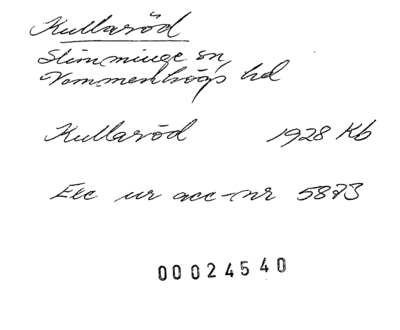 Kullaröd
Slimminge sn,
Vemmenhögs hd
Kullaröd 1928 Kb
Exc ur acc-nr 5873
00024540